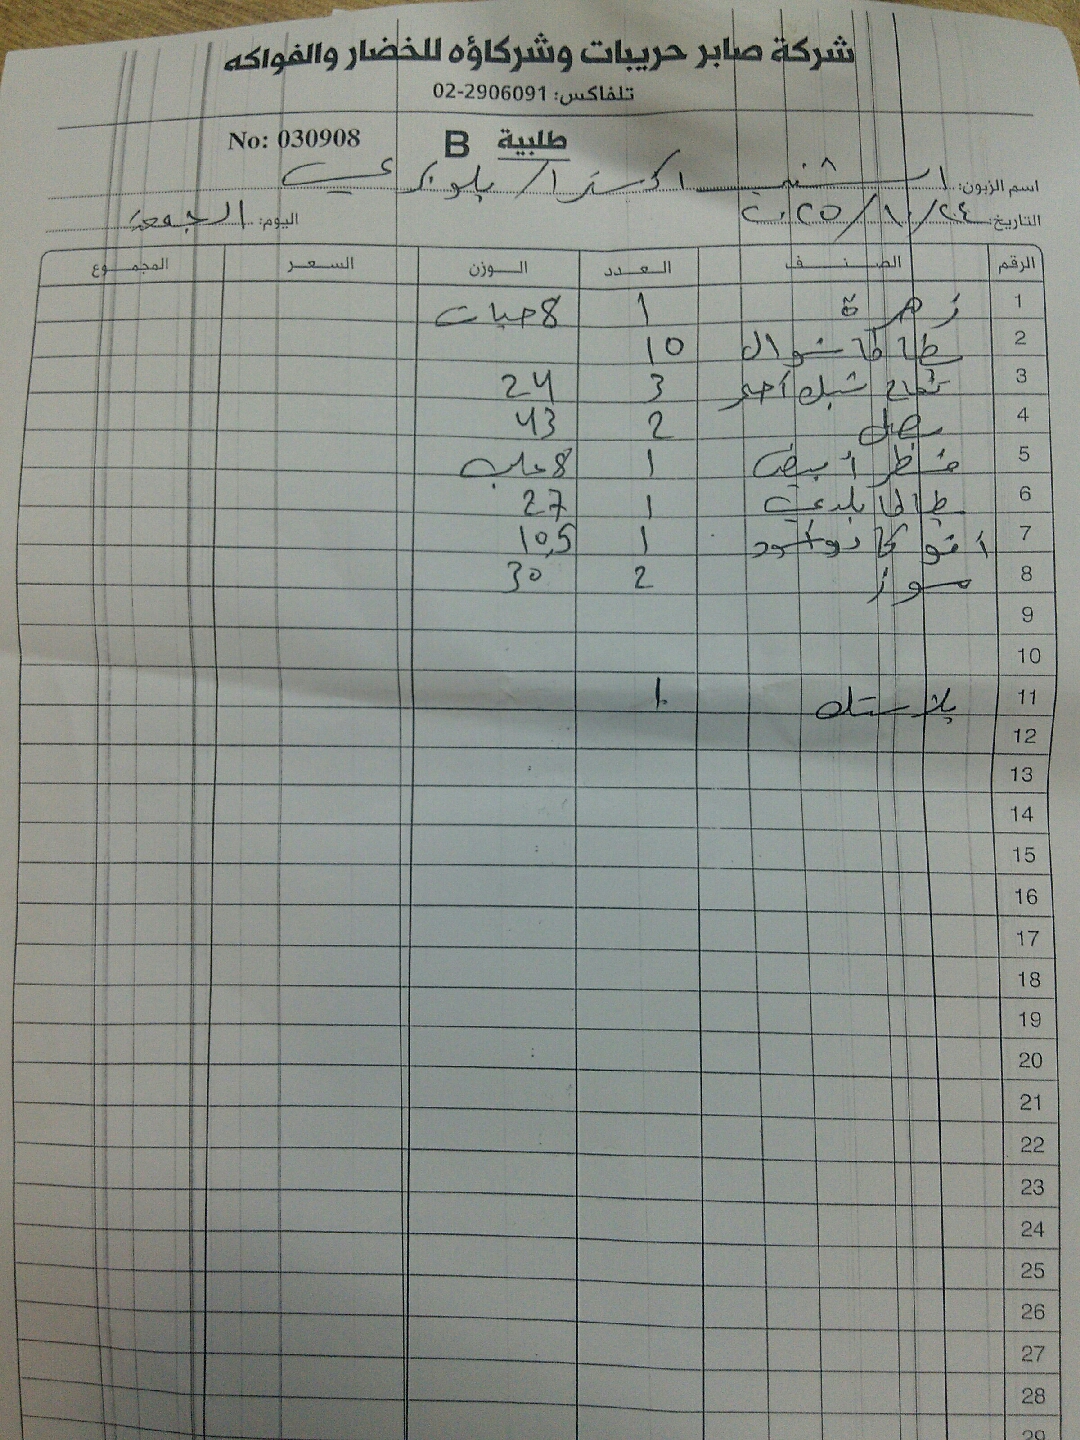 شركة صابر حريبات وشركاؤه للخضار والفواكه
تلفاكس: 02-2906091
No: 030908 B طلبية
اسم الزبون: اكسترا /
التاريخ: ٢٠٢٥/١٠/٢٤ اليوم: الجمعة
الرقم الصنف العدد الوزن السعر المجموع
1 زهرة 1 8 حبات
2 بطاطا شوال 10
3 تفاح شبك أحمر 3 24
4 بصل 2 43
5 فطر أبيض 1 8 علب
6 بطاطا بلدي 1 27
7 أفوكادو أسود 1 10,5
8 موز 2 30
9
10
11 بلاستك 1
12
13
14
15
16
17
18
19
20
21
22
23
24
25
26
27
28
29